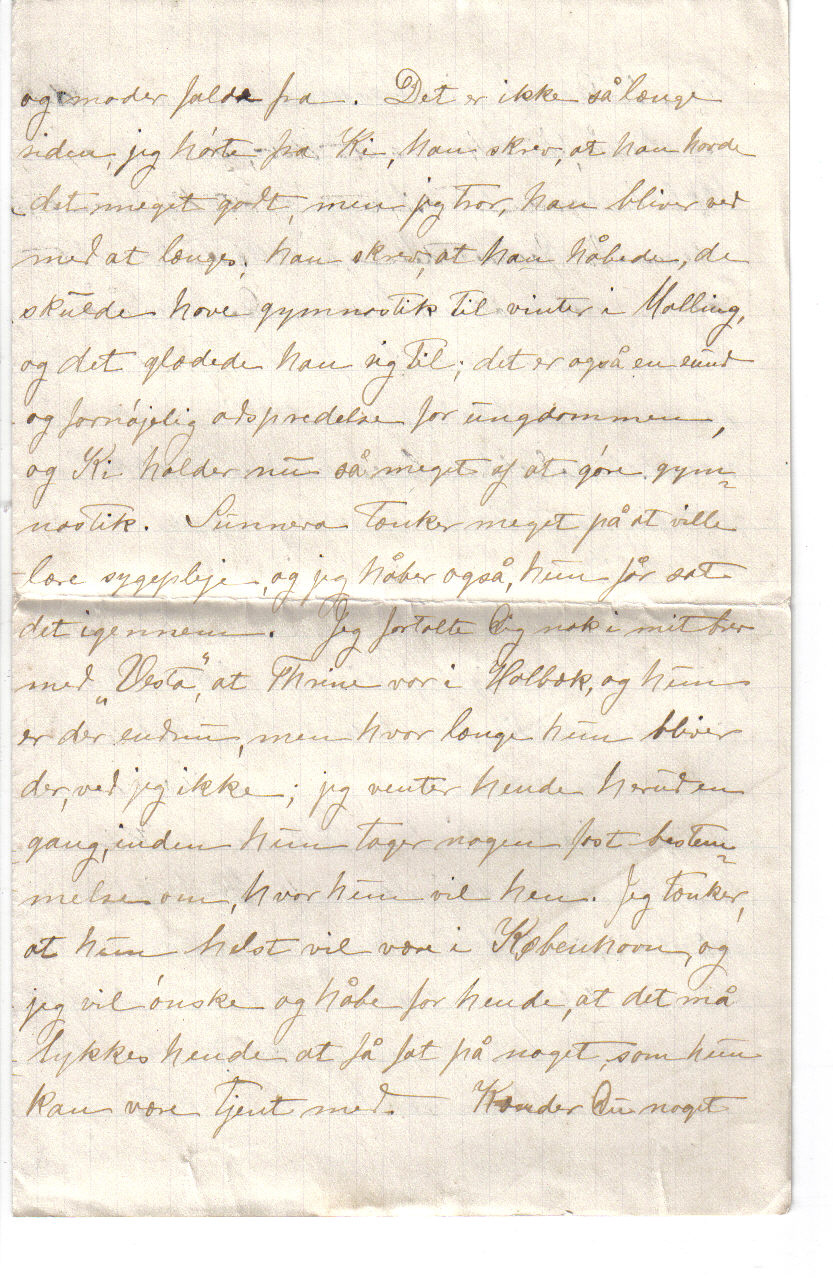 og moder falde fra. Det er ikke så længe
siden, jeg hørte fra Ki, han skrev, at han havde
det meget godt, men jeg tror, han bliver ved
med at længes; han skrev, at han håbede, de
skulde have gymnastik til vinter i Malling,
og det glædede han sig til; det er også en sund
og fornøjelig adspredelse for ungdommen,
og Ki holder nu så meget af at gøre gym=
nastik. Sunneva tænker meget på at ville
lære sygepleje, og jeg håber også, hun får sat
det igennem. Jeg fortalte Dig nok i mit brev
med "Vesta", at Thrine var i Holbæk, og hun
er der endnu, men hvor længe hun bliver
der, ved jeg ikke; jeg venter hende herud en
gang, inden hun tager nogen fast bestem=
melse om, hvor hun vil hen. Jeg tænker,
at hun helst vil være i København, og
jeg vil ønske og håbe for hende, at det må
lykkes hende at få fat på noget, som hun
kan være tjent med. Kender Du noget